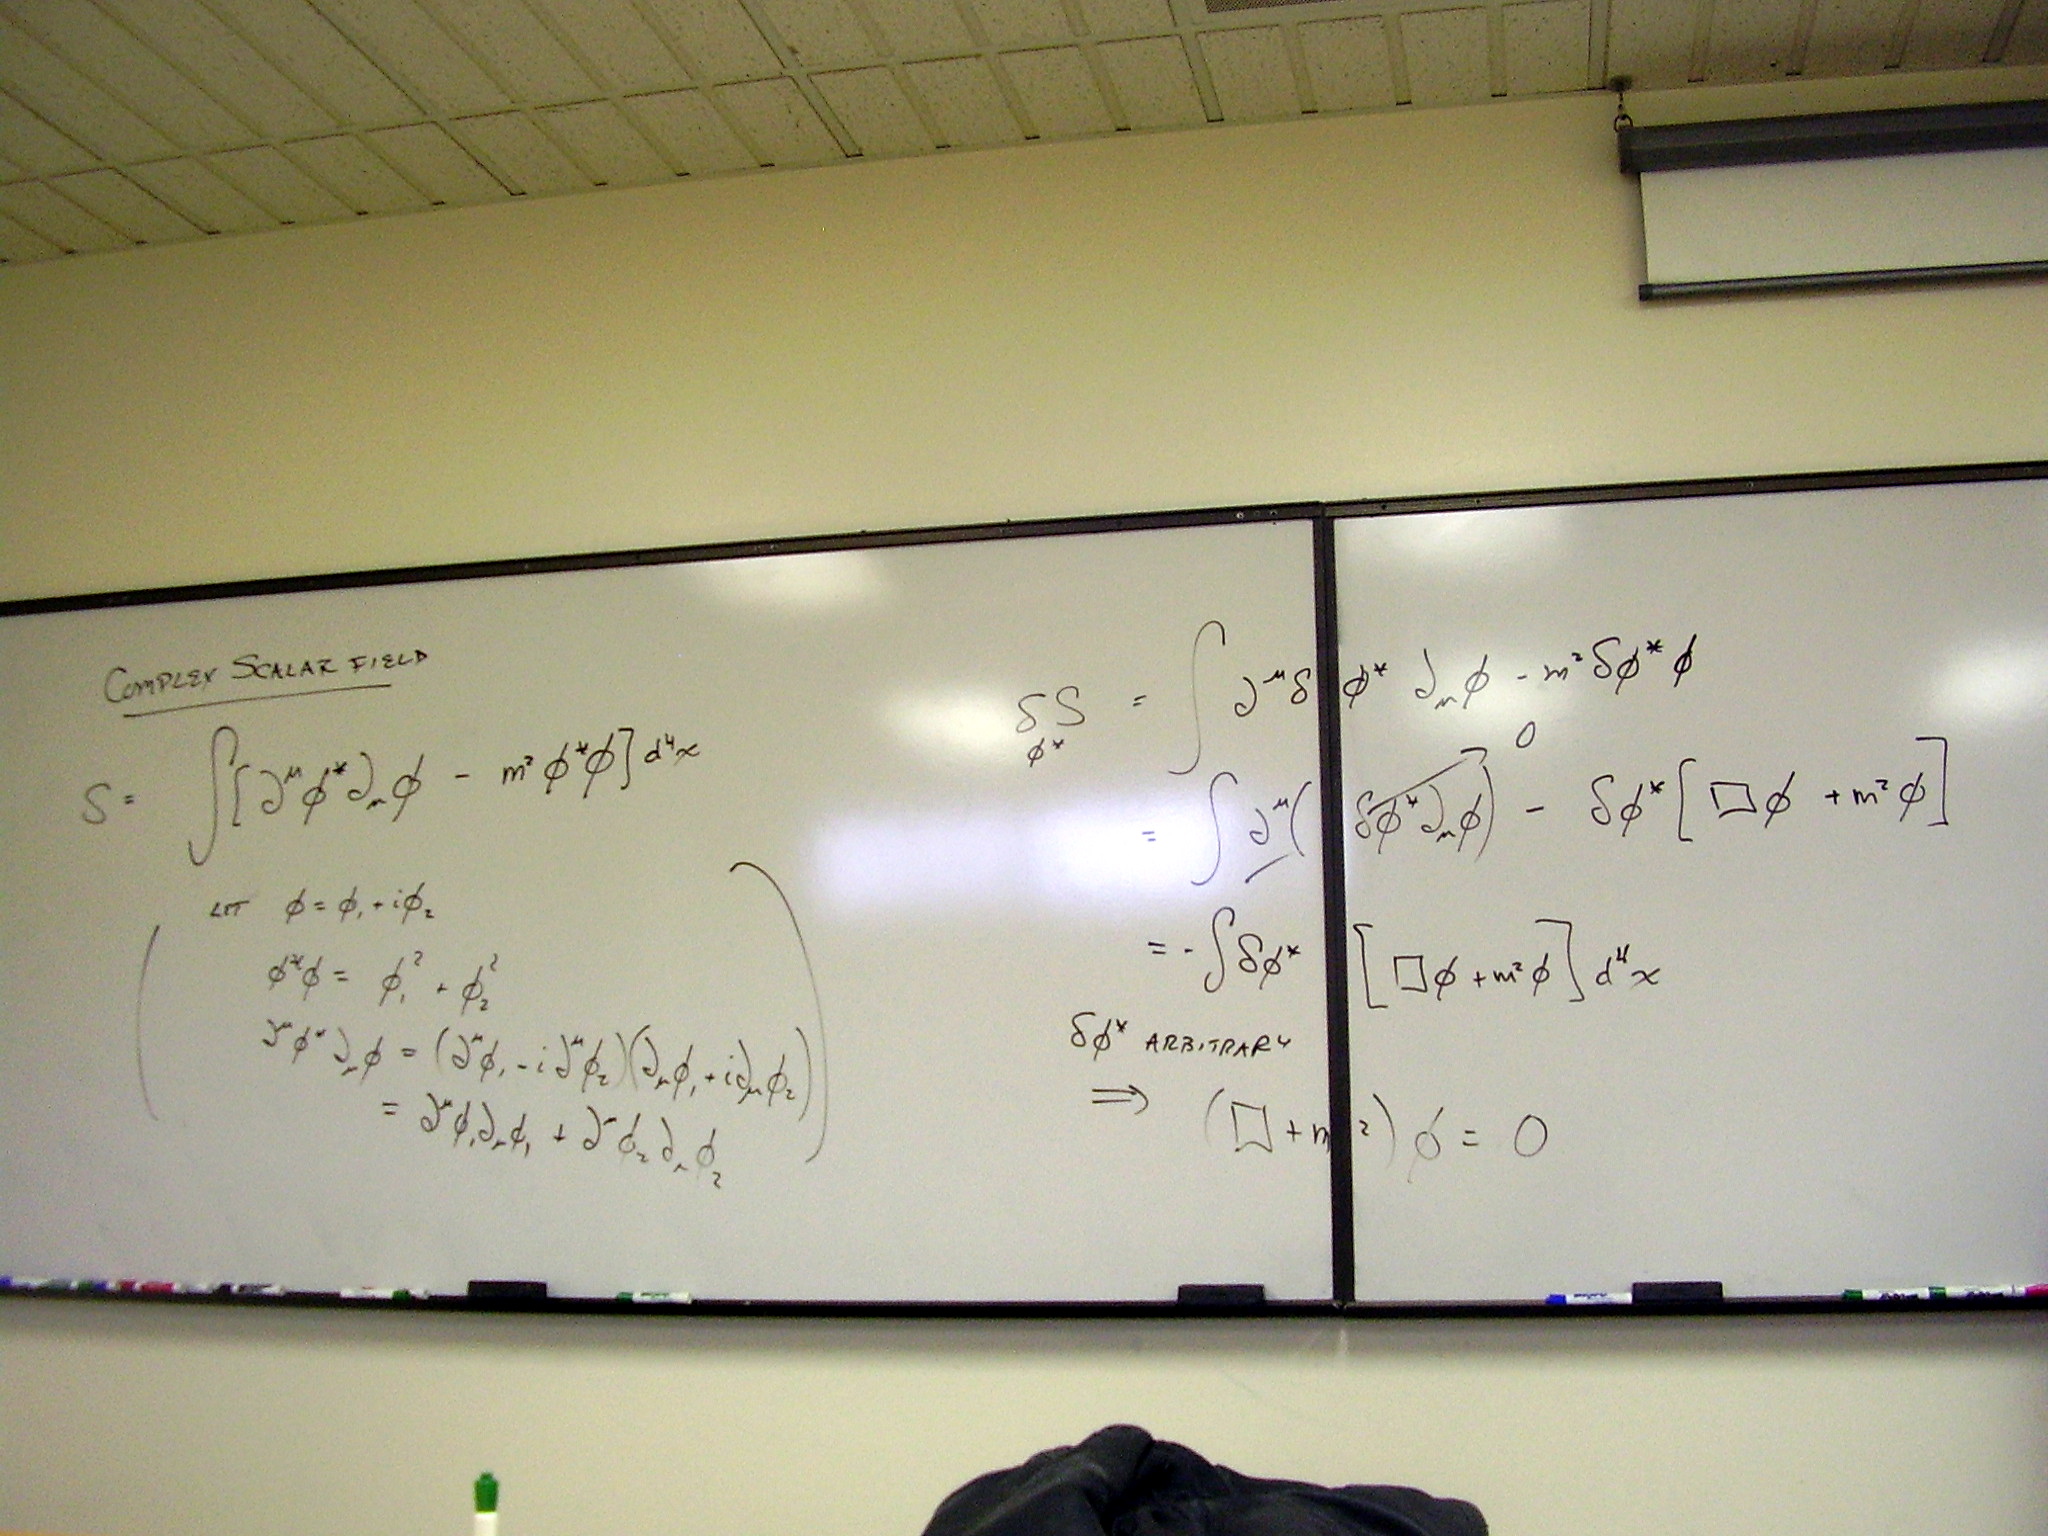 COMPLEX SCALAR FIELD
S = ∫[∂^μ φ* ∂_μ φ - m² φ*φ] d⁴x
LET φ = φ₁ + iφ₂
φ*φ = φ₁² + φ₂²
∂^μ φ* ∂_μ φ = (∂^μ φ₁ - i ∂^μ φ₂)(∂_μ φ₁ + i∂_μ φ₂)
= ∂^μ φ₁ ∂_μ φ₁ + ∂^μ φ₂ ∂_μ φ₂
δS = ∫ ∂^μ δφ* ∂_μ φ - m² δφ* φ
φ*
0
= ∫ ∂^μ (δφ* ∂_μ φ) - δφ* [□φ + m² φ]
= - ∫ δφ* [□φ + m² φ] d⁴x
δφ* ARBITRARY
⇒ (□ + m²) φ = 0